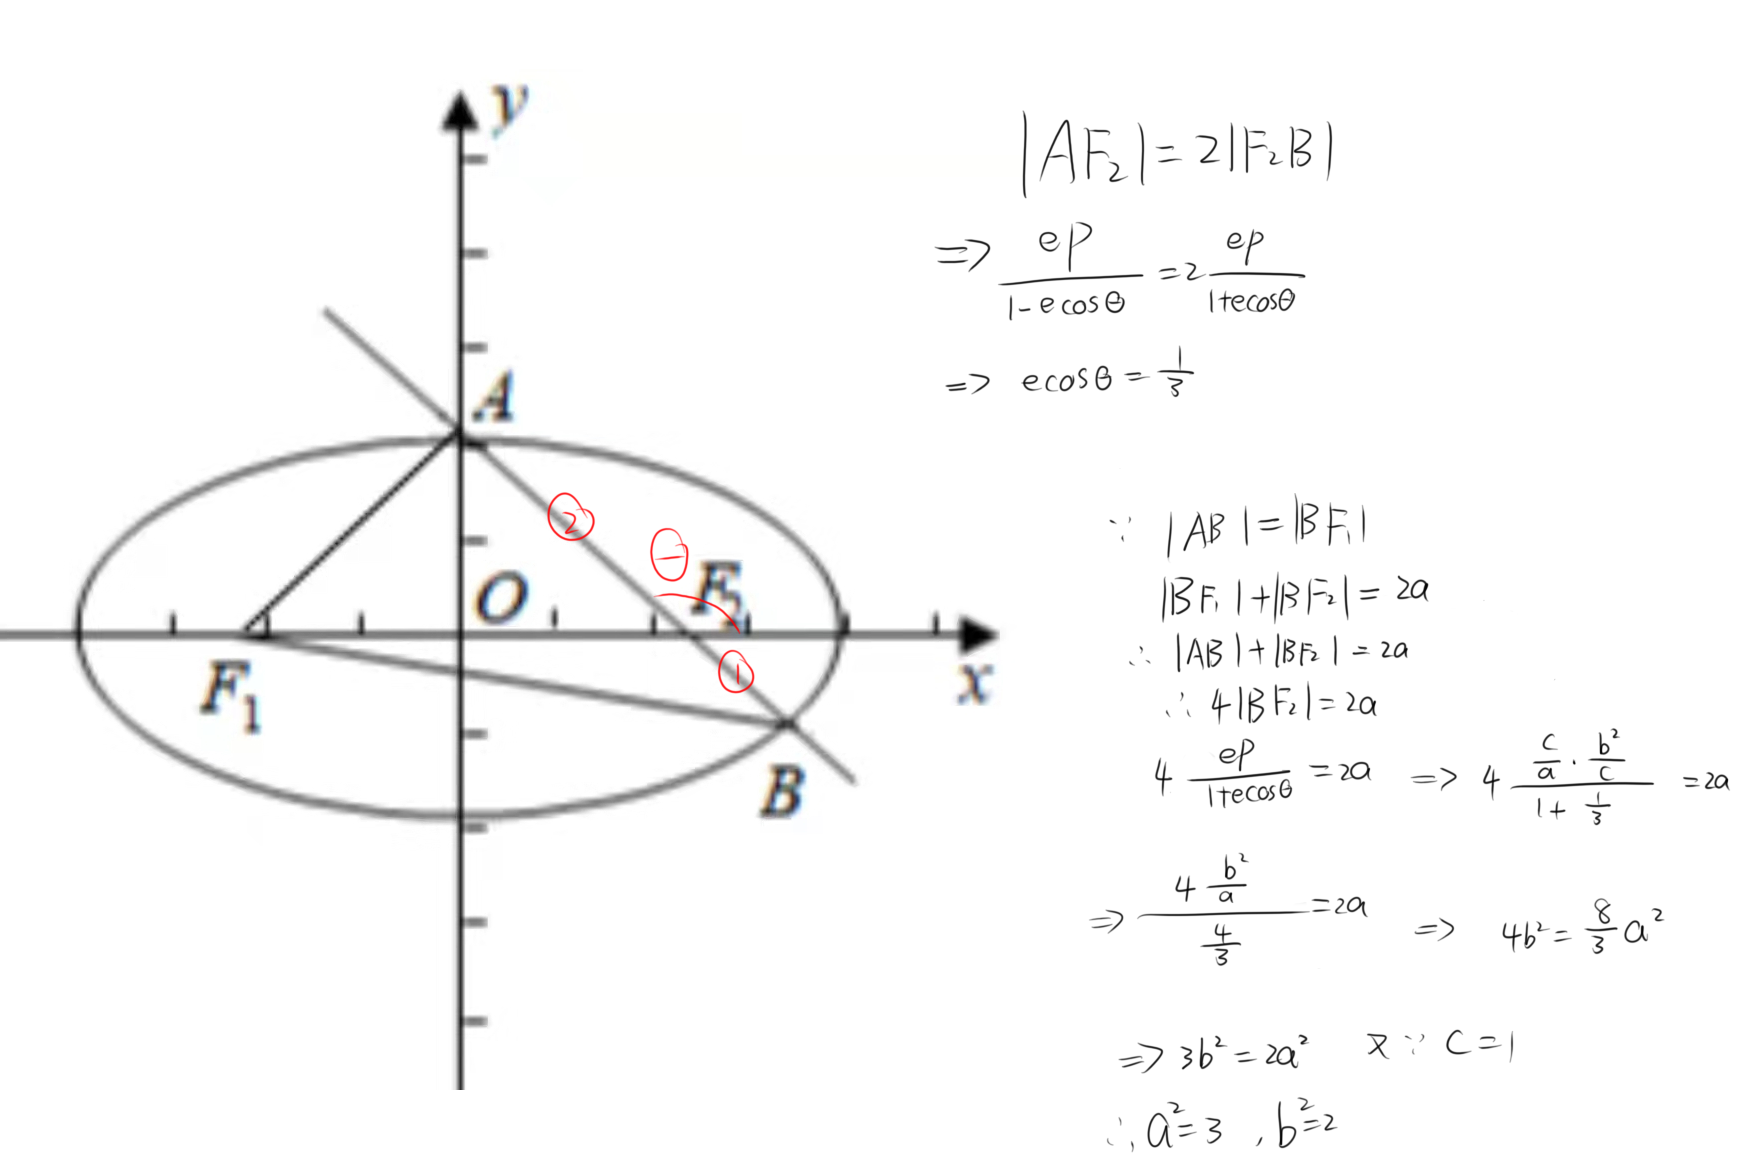 y
A
②
θ
F₂
O
①
F₁
x
B
|AF₂|=2|F₂B|
=> ep/(1-ecosθ) =2 ep/(1+ecosθ)
=> ecosθ = 1/3
∵ |AB|=|BF₁|
|BF₁|+|BF₂|=2a
∴ |AB|+|BF₂|=2a
∴ 4|BF₂|=2a
4 ep/(1+ecosθ) =2a => 4 (c/a · b²/c)/(1+ 1/3) =2a
=> (4 b²/a)/(4/3) =2a => 4b²= 8/3 a²
=> 3b²=2a² 又∵ C=1
∴ a²=3 , b²=2